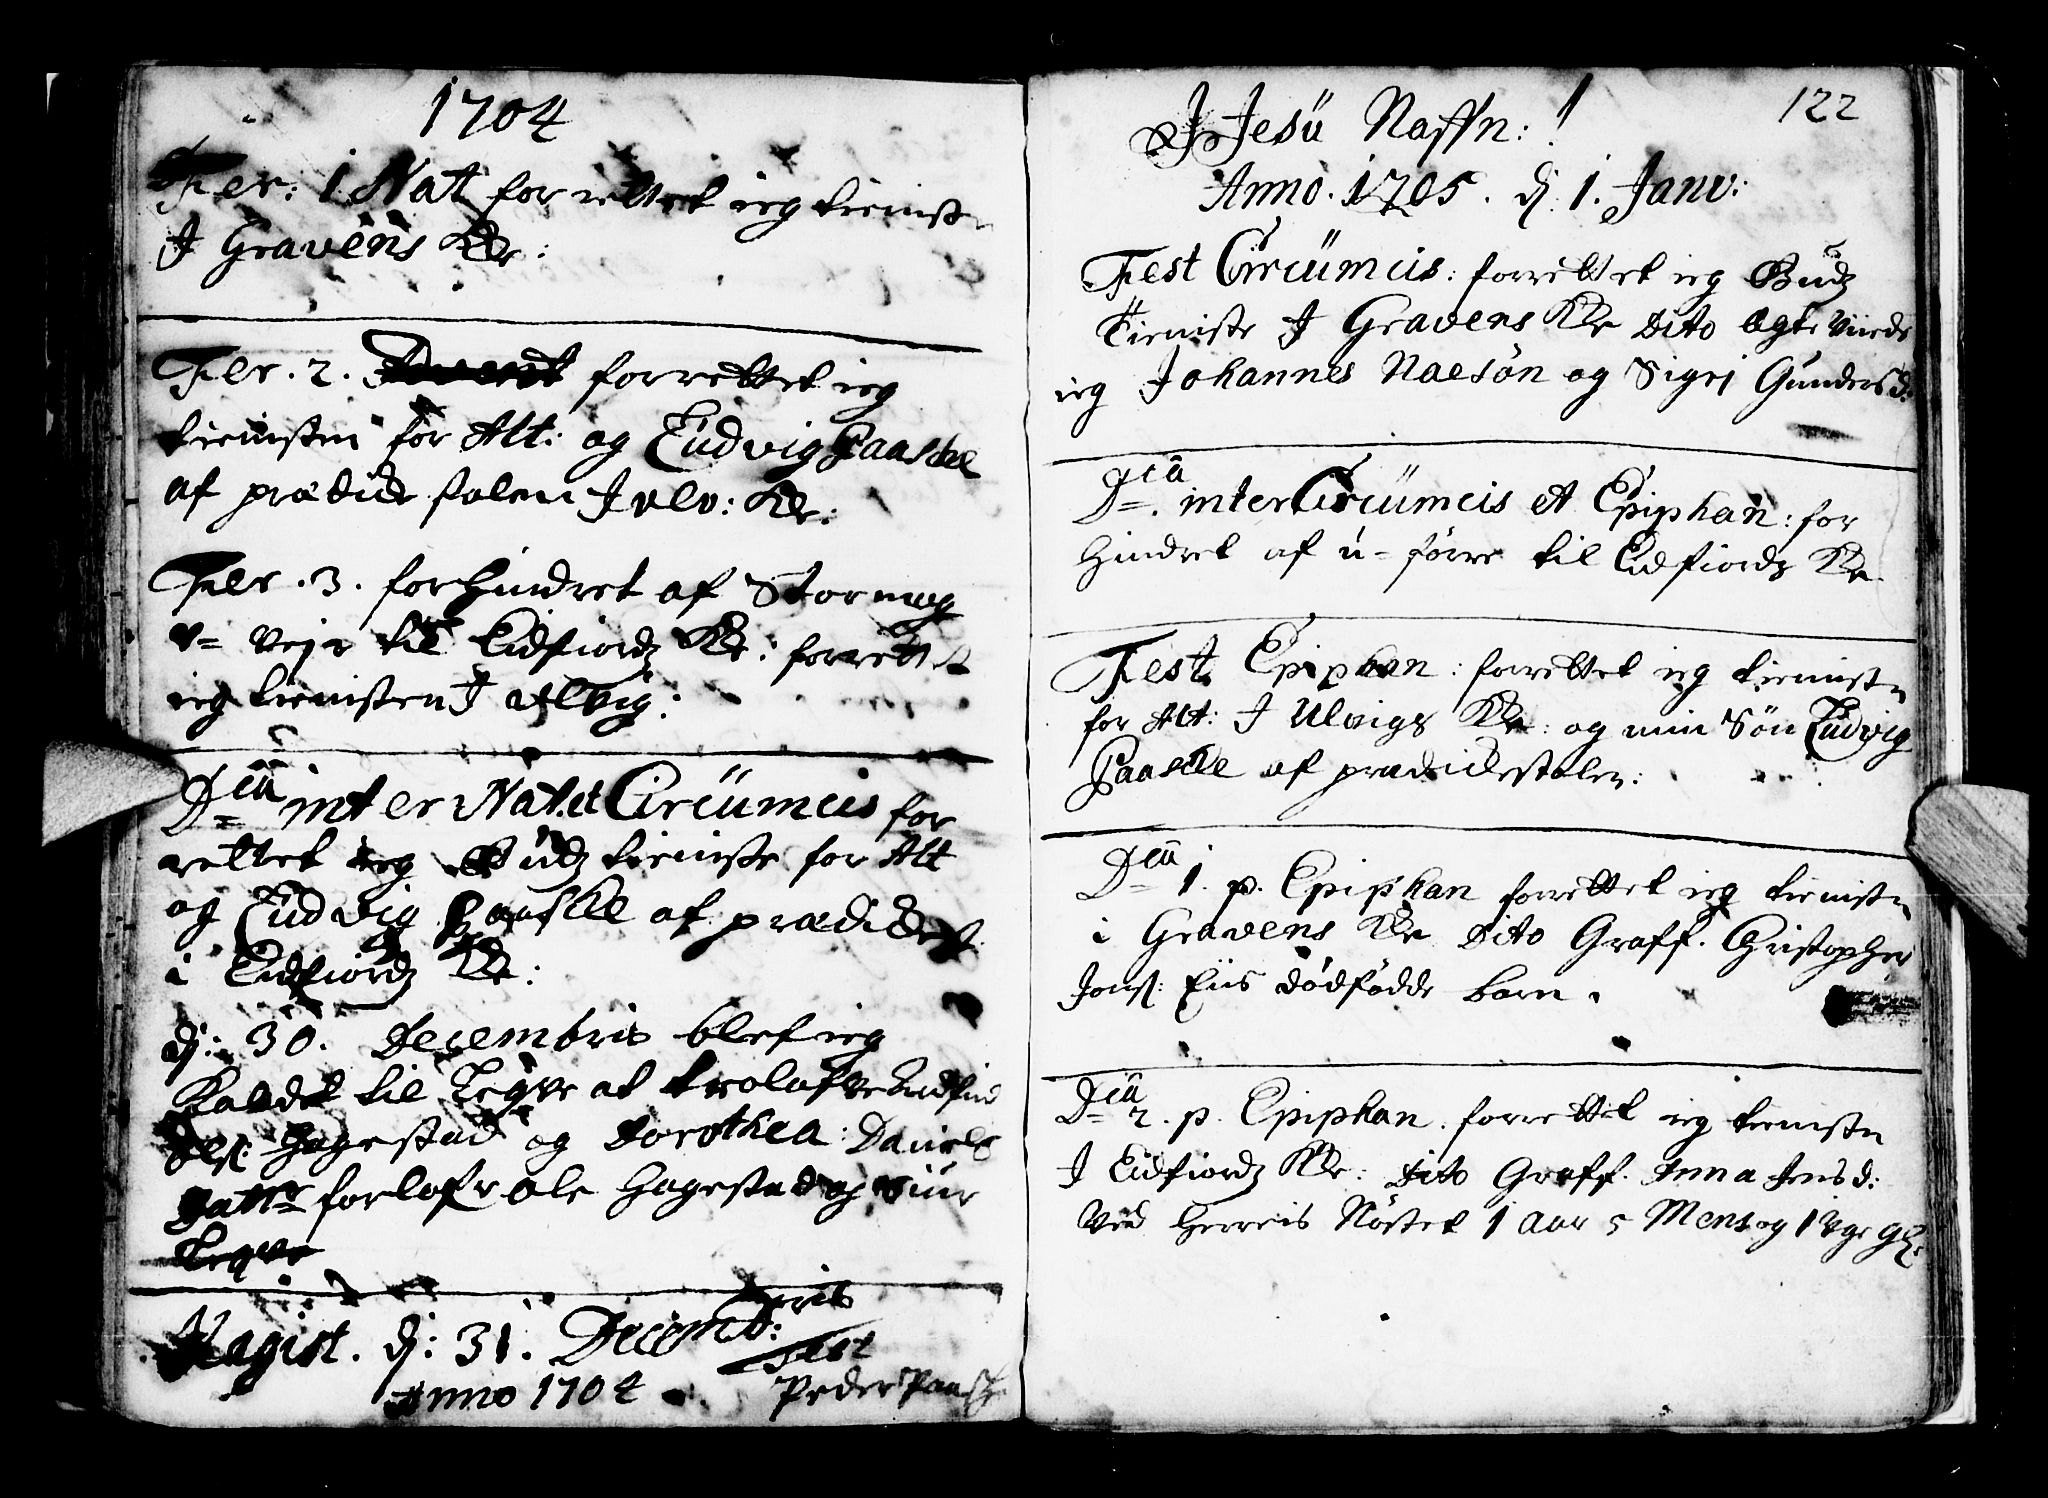 1704
Fer: 1 Nat forrettet ieg tienist
I Gravens Kr:
Fer. 2. forrettet ieg
tienisten for Alt: og Ludvig Paaske
af prædicke stolen I vlv: Kr:
Fer. 3. forhindret af Stor mug
v= vejr til Eidfiords Kr: forrettet
ieg tienisten I vlvig:
Dca inter Nat. et Circumcis for
rettet ieg Buds tieniste for Alt
og Ludvig Paaske af prædickest
i Eidfiords Kr:
dj: 30. Decembris blef ieg
Kaldet til Legre at trolofve
Ols: Hagestad og Dorothea: Daniels
Datter forlofr Ole Hagestad og
Legre
Magist. dj: 31. Decemb: bris
Test
Anno 1704
Peder Paaske
122
I Jesu Naffn: !
Anno. 1705. dj. 1. Janv:
Fest Circumcis: forrettet ieg Buds
Tieniste I Gravens Kr Dito Egte Viede
ieg Johannes Naesøn og Sigrj Gundersd:
Dca inter Circumcis et Epiphan: for
hindret af u=førre til Eidfiords Kr
Fest. Epiphan: forrettet ieg tienistn
for Alt: I Ulvigs Kr: og min Søn Ludvig
Paaske af prædickestolen:
Dca 1. p. Epiphan forrettet ieg tienistn
i Gravens Kr Dito Graff. Christopher
Jons: Eiis dødfødde barn.
Dca 2. p. Epiphan. forrettet ieg tienistn
I Eidfiords Kr: Dito Graff. Anna Jensd:
Ved Herreis Nøstet 1 aar 5 Mens og 1 Vge gl: